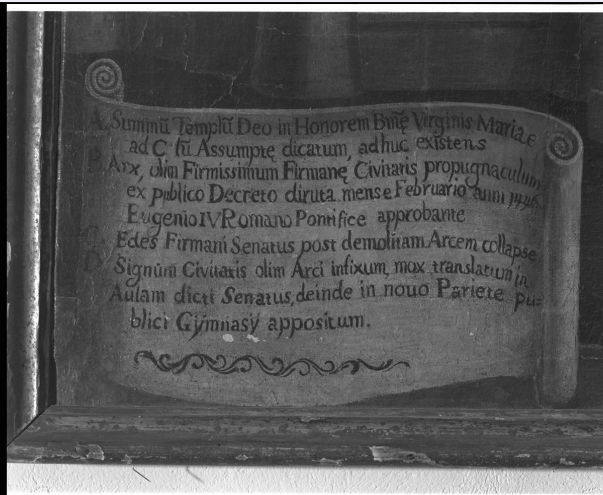 A. Summũ Templũ Deo in Honorem Bm̃ę Virginis Mariae
ad C lũ Assumptę dicatum, adhuc existens
B. Arx, olim Firmissimum Firmanę Civitatis propugnaculum
ex publico Decreto diruta mense Februario anni 1446
Eugenio IV Romano Pontifice approbante
C. Edes Firmani Senatus post demolitam Arcem collapse
D. Signum Civitatis olim Arci infixum, mox translatum in
Aulam dicti Senatus, deinde in nouo Pariete pu=
blici Gymnasÿ appositum.